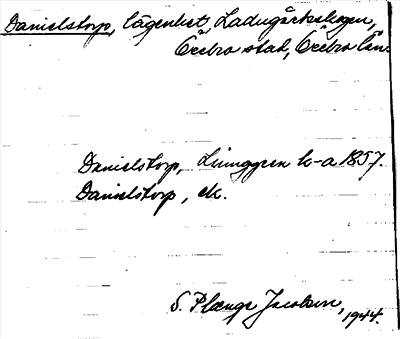 Danielstorp, lägenhet, Ladugårdsskogen,
Örebro stad, Örebro län.
Danielstorp, Ljunggren k-a 1857.
Danielstorp, ek.
S. Plænge Jacobson,
1944.